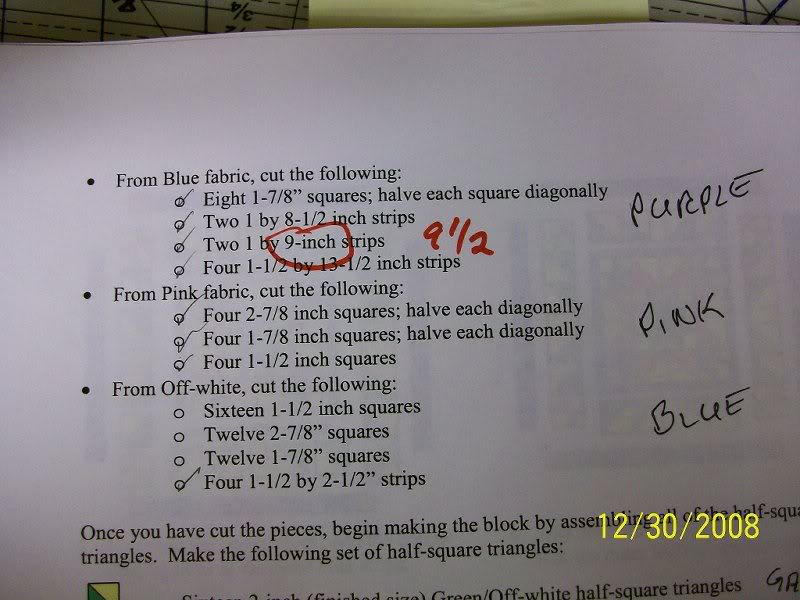 • From Blue fabric, cut the following:
o Eight 1-7/8” squares; halve each square diagonally
PURPLE
o Two 1 by 8-1/2 inch strips
o Two 1 by 9-inch strips
9 1/2
o Four 1-1/2 by 13-1/2 inch strips
• From Pink fabric, cut the following:
o Four 2-7/8 inch squares; halve each diagonally
PINK
o Four 1-7/8 inch squares; halve each diagonally
o Four 1-1/2 inch squares
• From Off-white, cut the following:
BLUE
o Sixteen 1-1/2 inch squares
o Twelve 2-7/8” squares
o Twelve 1-7/8” squares
o Four 1-1/2 by 2-1/2” strips
Once you have cut the pieces, begin making the block by assembling all of the half-squa
12/30/2008
triangles. Make the following set of half-square triangles:
Sixteen 2-inch (finished size) Green/Off-white half-square triangles